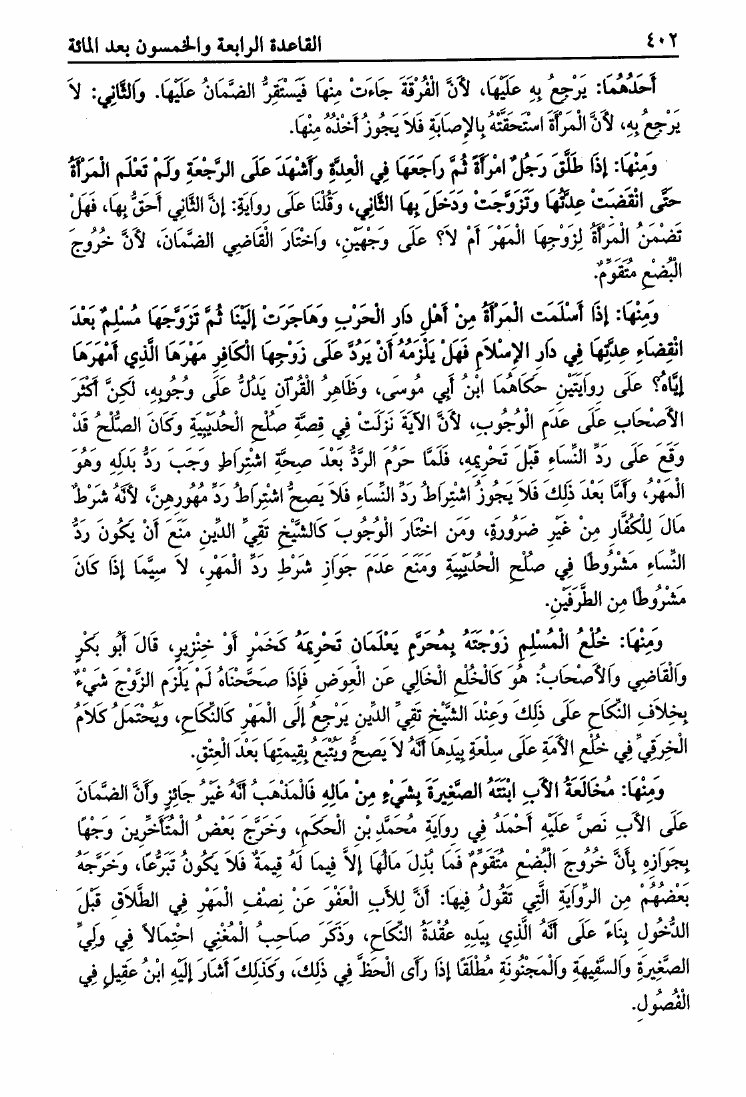 ٤٠٢ القاعدة الرابعة والخمسون بعد المائة
أَحَدُهُمَا: يَرْجِعُ بِهِ عَلَيْهَا، لأَنَّ الْفُرْقَةَ جَاءَتْ مِنْهَا فَيَسْتَقِرُّ الضَّمَانُ عَلَيْهَا. وَالثَّانِي: لاَ
يَرْجِعُ بِهِ، لأَنَّ الْمَرْأَةَ اسْتَحَقَّتْهُ بِالإِصَابَةِ فَلاَ يَجُوزُ أَخْذُهُ مِنْهَا.
وَمِنْهَا: إِذَا طَلَّقَ رَجُلٌ امْرَأَةً ثُمَّ رَاجَعَهَا فِي الْعِدَّةِ وَأَشْهَدَ عَلَى الرَّجْعَةِ وَلَمْ تَعْلَمِ الْمَرْأَةُ
حَتَّى انْقَضَتْ عِدَّتُهَا وَتَزَوَّجَتْ وَدَخَلَ بِهَا الثَّانِي، وَقُلْنَا عَلَى رِوَايَةِ: إِنَّ الثَّانِي أَحَقُّ بِهَا، فَهَلْ
تَضْمَنُ الْمَرْأَةُ لِزَوْجِهَا الْمَهْرَ أَمْ لاَ؟ عَلَى وَجْهَيْنِ، وَاخْتَارَ الْقَاضِي الضَّمَانَ، لأَنَّ خُرُوجَ
الْبُضْعِ مُتَقَوِّمٌ.
وَمِنْهَا: إِذَا أَسْلَمَتِ الْمَرْأَةُ مِنْ أَهْلِ دَارِ الْحَرْبِ وَهَاجَرَتْ إِلَيْنَا ثُمَّ تَزَوَّجَهَا مُسْلِمٌ بَعْدَ
انْقِضَاءِ عِدَّتِهَا فِي دَارِ الإِسْلاَمِ فَهَلْ يَلْزَمُهُ أَنْ يَرُدَّ عَلَى زَوْجِهَا الْكَافِرِ مَهْرَهَا الَّذِي أَمْهَرَهَا
إِيَّاهُ؟ عَلَى رِوَايَتَيْنِ حَكَاهُمَا ابْنُ أَبِي مُوسَى، وَظَاهِرُ الْقُرْآنِ يَدُلُّ عَلَى وُجُوبِهِ، لَكِنَّ أَكْثَرَ
الأَصْحَابِ عَلَى عَدَمِ الْوُجُوبِ، لأَنَّ الآيَةَ نَزَلَتْ فِي قِصَّةِ صُلْحِ الْحُدَيْبِيَةِ وَكَانَ الصُّلْحُ قَدْ
وَقَعَ عَلَى رَدِّ النِّسَاءِ قَبْلَ تَحْرِيمِهِ، فَلَمَّا حَرُمَ الرَّدُّ بَعْدَ صِحَّةِ اشْتِرَاطِهِ وَجَبَ رَدُّ بَدَلِهِ وَهُوَ
الْمَهْرُ، وَأَمَّا بَعْدَ ذَلِكَ فَلاَ يَجُوزُ اشْتِرَاطُ رَدِّ النِّسَاءِ فَلاَ يَصِحُّ اشْتِرَاطُ رَدِّ مُهُورِهِنَّ، لأَنَّهُ شَرْطُ
مَالٍ لِلْكُفَّارِ مِنْ غَيْرِ ضَرُورَةٍ، وَمَنِ اخْتَارَ الْوُجُوبَ كَالشَّيْخِ تَقِيِّ الدِّينِ مَنَعَ أَنْ يَكُونَ رَدُّ
النِّسَاءِ مَشْرُوطًا فِي صُلْحِ الْحُدَيْبِيَةِ وَمَنَعَ عَدَمَ جَوَازِ شَرْطِ رَدِّ الْمَهْرِ، لاَ سِيَّمَا إِذَا كَانَ
مَشْرُوطًا مِنَ الطَّرَفَيْنِ.
وَمِنْهَا: خُلْعُ الْمُسْلِمِ زَوْجَتَهُ بِمُحَرَّمٍ يَعْلَمَانِ تَحْرِيمَهُ كَخَمْرٍ أَوْ خِنْزِيرٍ، قَالَ أَبُو بَكْرٍ
وَالْقَاضِي وَالأَصْحَابُ: هُوَ كَالْخُلْعِ الْخَالِي عَنِ الْعِوَضِ فَإِذَا صَحَّحْنَاهُ لَمْ يَلْزَمِ الزَّوْجَ شَيْءٌ
بِخِلاَفِ النِّكَاحِ عَلَى ذَلِكَ وَعِنْدَ الشَّيْخِ تَقِيِّ الدِّينِ يَرْجِعُ إِلَى الْمَهْرِ كَالنِّكَاحِ، وَيُحْتَمَلُ كَلاَمُ
الْخِرَقِيِّ فِي خُلْعِ الأَمَةِ عَلَى سِلْعَةٍ بِيَدِهَا أَنَّهُ لاَ يَصِحُّ وَيُتْبَعُ بِقِيمَتِهَا بَعْدَ الْعِتْقِ.
وَمِنْهَا: مُخَالَعَةُ الأَبِ ابْنَتَهُ الصَّغِيرَةَ بِشَيْءٍ مِنْ مَالِهِ فَالْمَذْهَبُ أَنَّهُ غَيْرُ جَائِزٍ وَأَنَّ الضَّمَانَ
عَلَى الأَبِ نَصَّ عَلَيْهِ أَحْمَدُ فِي رِوَايَةِ مُحَمَّدِ بْنِ الْحَكَمِ، وَخَرَّجَ بَعْضُ الْمُتَأَخِّرِينَ وَجْهًا
بِجَوَازِهِ بِأَنَّ خُرُوجَ الْبُضْعِ مُتَقَوِّمٌ فَمَا بُذِلَ مَالُهَا إِلاَّ فِيمَا لَهُ قِيمَةٌ فَلاَ يَكُونُ تَبَرُّعًا، وَخَرَّجَهُ
بَعْضُهُمْ مِنَ الرِّوَايَةِ الَّتِي تَقُولُ فِيهَا: أَنَّ لِلأَبِ الْعَفْوَ عَنْ نِصْفِ الْمَهْرِ فِي الطَّلاَقِ قَبْلَ
الدُّخُولِ بِنَاءً عَلَى أَنَّهُ الَّذِي بِيَدِهِ عُقْدَةُ النِّكَاحِ، وَذَكَرَ صَاحِبُ الْمُغْنِي احْتِمَالاً فِي وَلِيِّ
الصَّغِيرَةِ وَالسَّفِيهَةِ وَالْمَجْنُونَةِ مُطْلَقًا إِذَا رَأَى الْحَظَّ فِي ذَلِكَ، وَكَذَلِكَ أَشَارَ إِلَيْهِ ابْنُ عَقِيلٍ فِي
الْفُصُولِ.